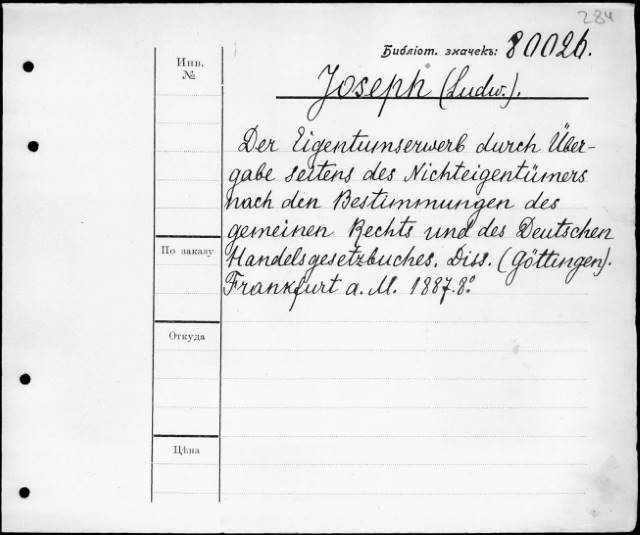 284
Библіот. значекъ: 80026.
Инв.
№
Joseph (Ludw.).
Der Eigentumserwerb durch Über-
gabe seitens des Nichteigentümers
nach den Bestimmungen des
gemeinen Rechts und des Deutschen
По заказу
Handelsgesetzbuches. Diss. (Göttingen).
Frankfurt a. M. 1887. 8º.
Откуда
Цѣна